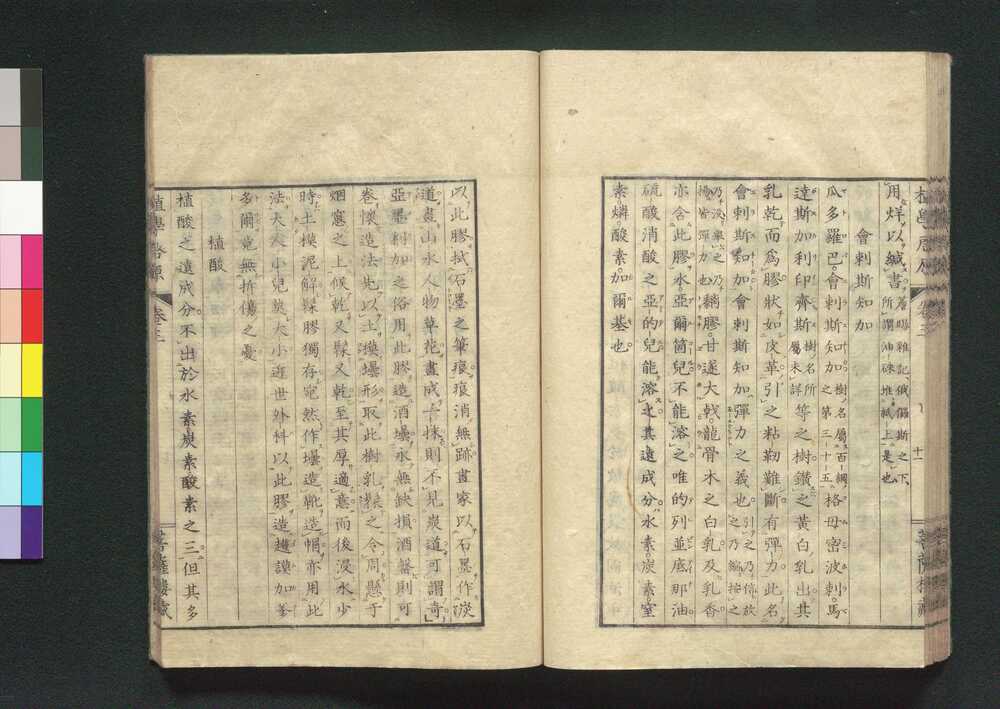 用烊以緘書
會剌斯知加
瓜多羅巴會剌斯知加之第三十五格母密波剌馬
達斯加利印齊斯等之樹鑽之黃白乳出其
乳乾而爲膠狀如皮革引之粘韌難斷有彈力此名
會剌斯知加會剌斯知加彈力之義也
鷭膠甘遂大戟龍骨木之白乳及乳香
亦含此膠水亞爾箇兒不能溶之唯的列並底那油
硫酸消酸之亞的兒能溶之其遠成分水素炭素窒
素燐酸素加爾基也
以此膠拭石墨之筆痕痕消無跡畫家以石墨作炭
道畫山水人物草花畫成一抹則不見炭道可謂奇
亞墨利加之俗用此膠造酒壜永無缺損酒罄則可
卷懷造法先以土摸壜形取此樹乳髹之令周懸于
烟窓之上候乾又髹又乾至其厚適意而後浸水少
時土摸泥解髹膠獨存宛然作壜造靴造帽亦用此
法大人小兒莫大小近世外科以此膠造達謨加爹
多爾竟無折傷之憂
植酸
植酸之遠成分不出於水素炭素酸素之三但其多
植學啓原 卷三
菩薩樓藏